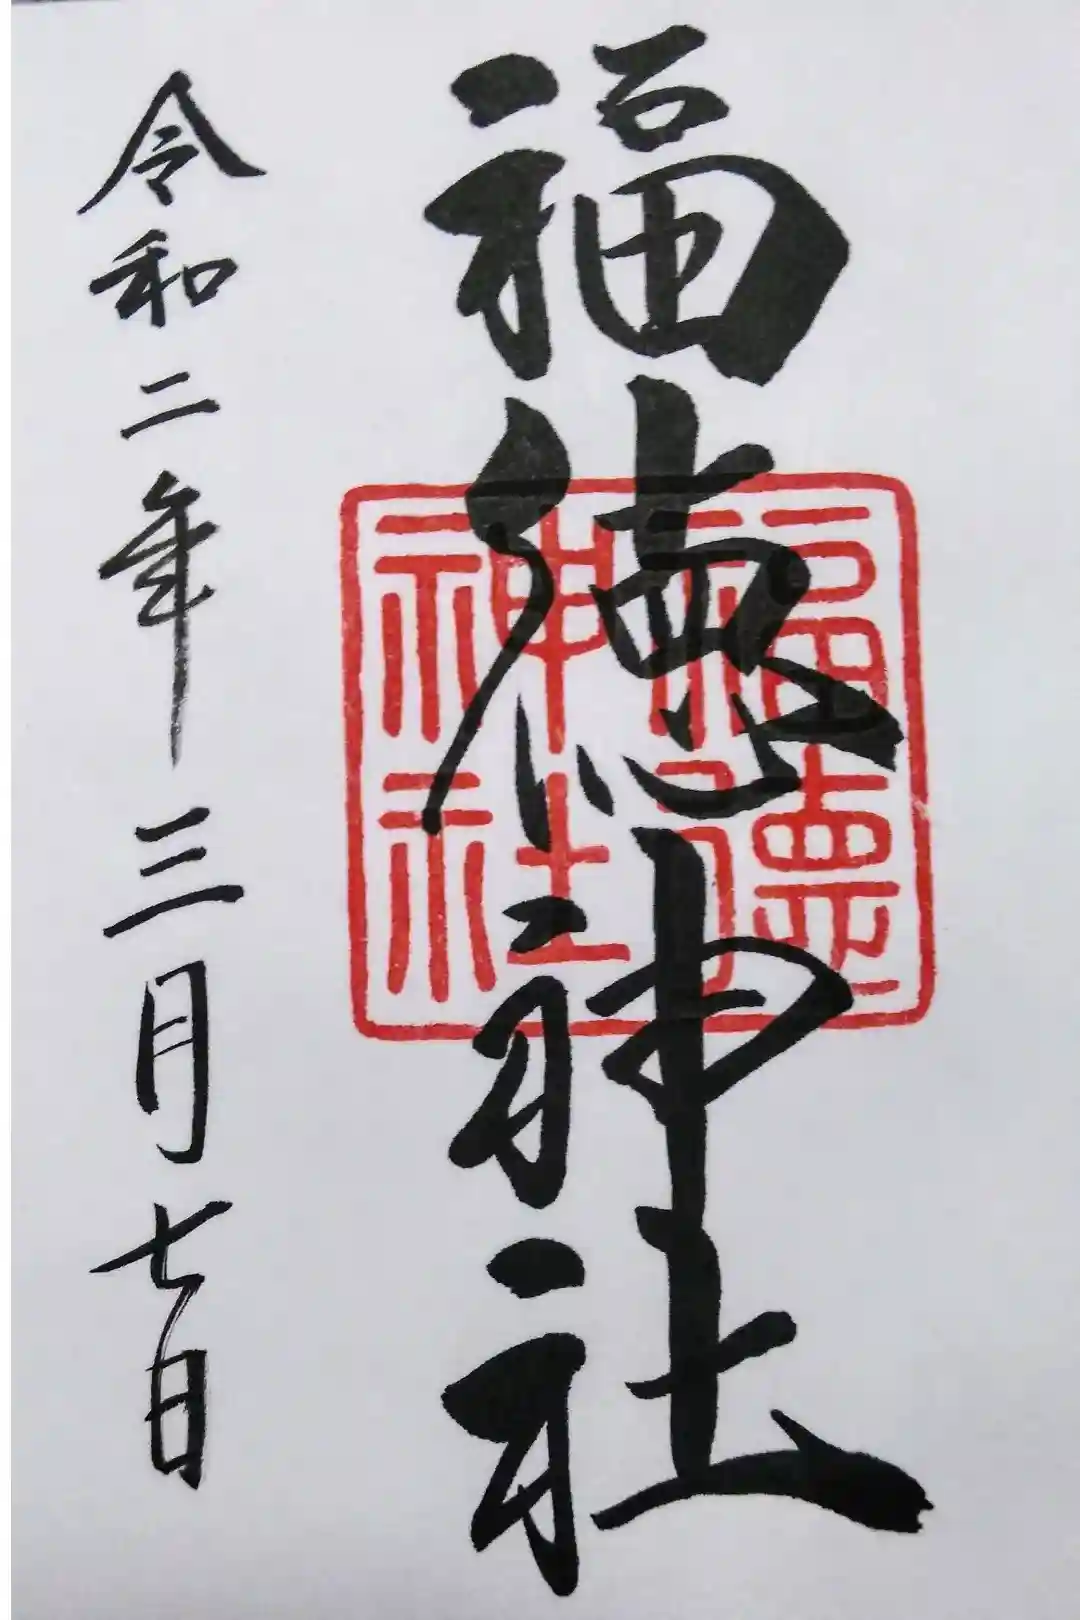 福徳神社
福徳
神社
令和二年三月七日